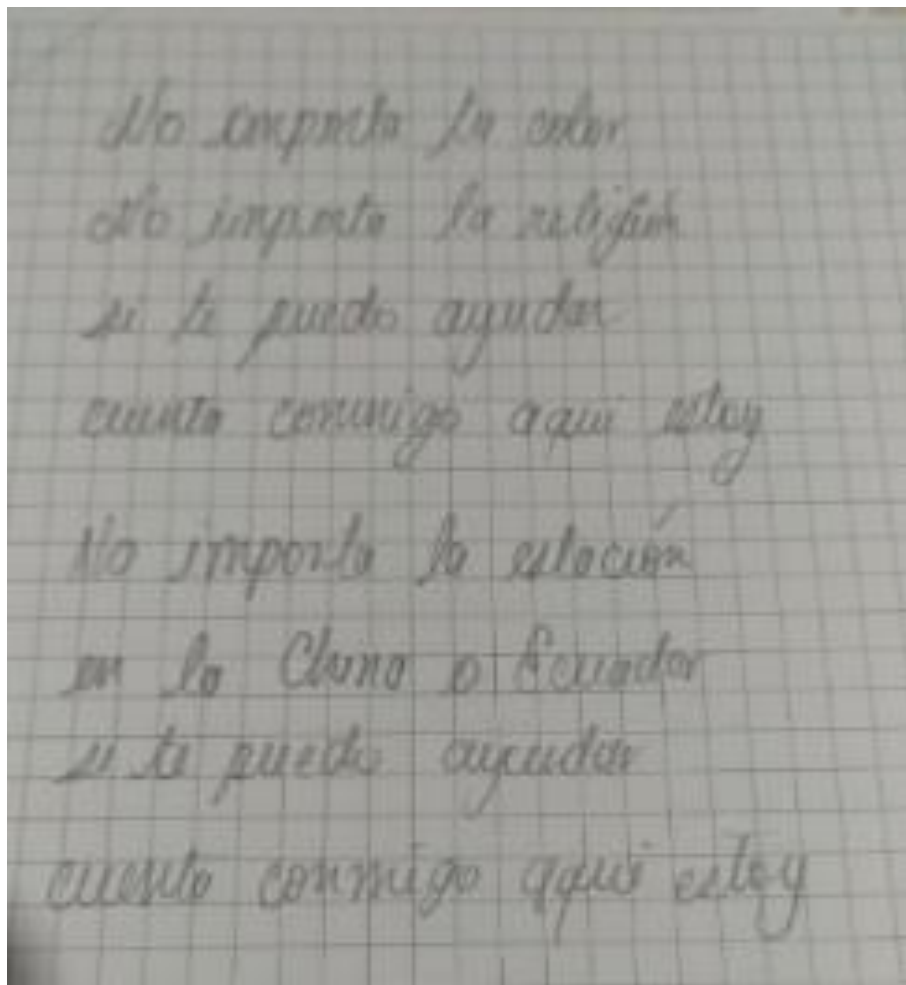 No importa la color
No importa la religión
si te puedo ayudar
cuenta conmigo aqui estoy
No importa la estación
en la China o Ecuador
si te puedo ayudar
cuenta conmigo aqui estoy